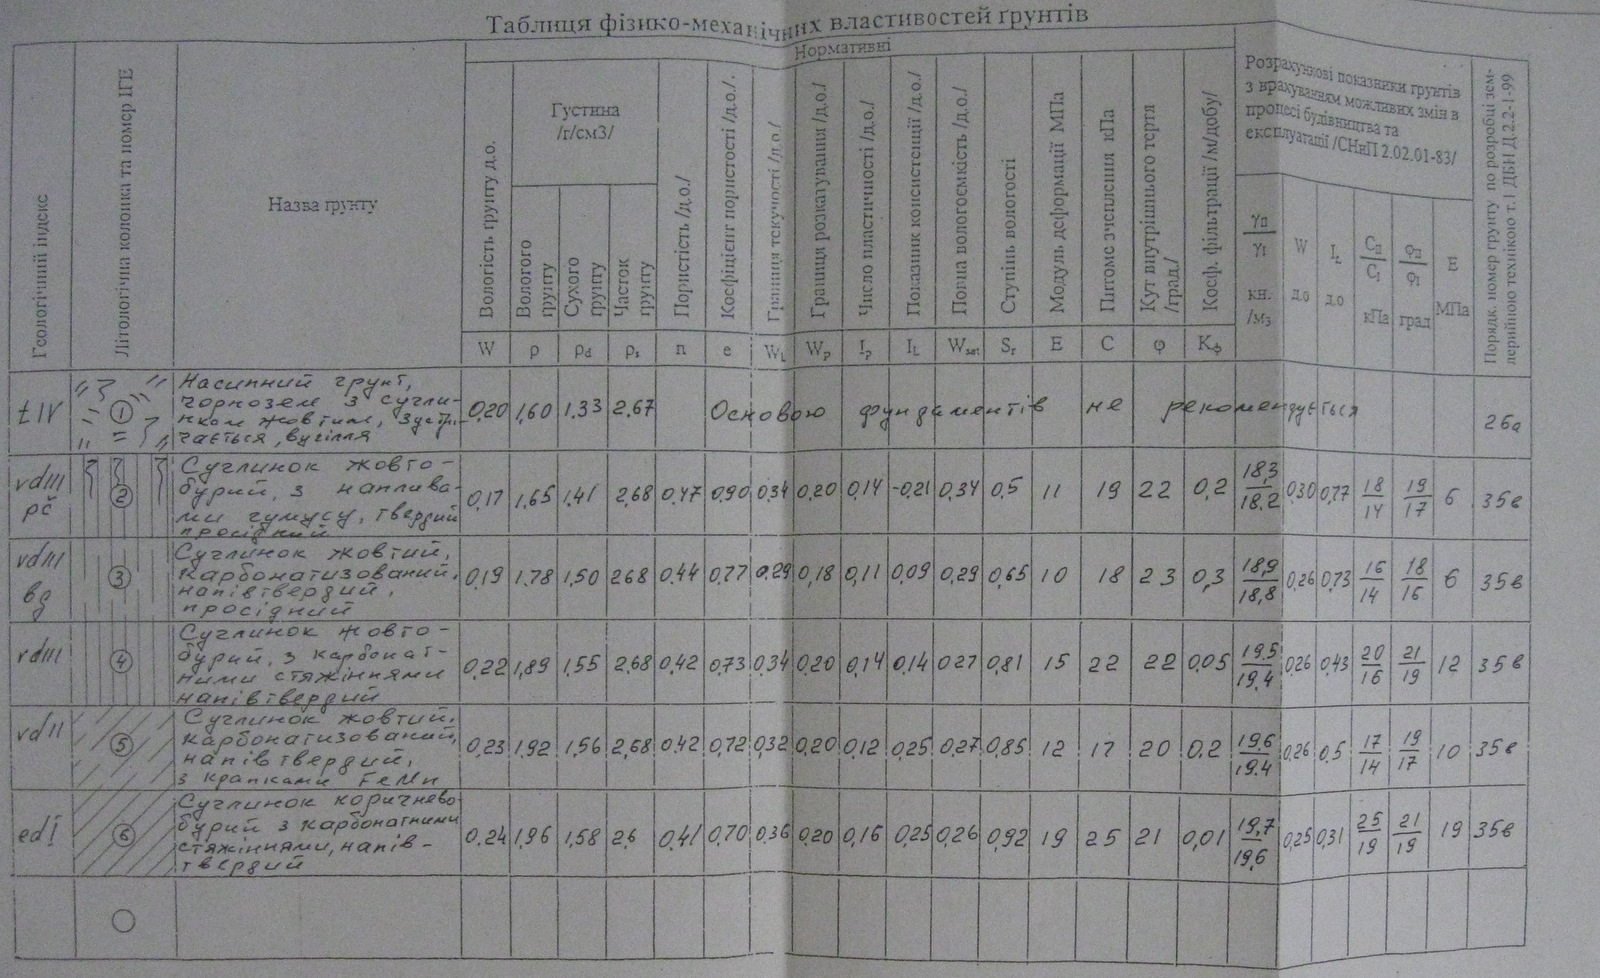 Таблиця фізико-механічних властивостей ґрунтів
Геологічний індекс
Літологічна колонка та номер ІГЕ
Назва ґрунту
Нормативні
Вологість ґрунту д.о.
Густина
/г/см3/
Вологого
ґрунту
Сухого
ґрунту
Часток
ґрунту
Пористість /д.о./
Коефіцієнт пористості /д.о./.
Границя текучості /д.о./
Границя розкатування /д.о./
Число пластичності /д.о./
Показник консистенції /д.о./
Повна вологоємкість /д.о./
Ступінь вологості
Модуль деформації МПа
Питоме зчеплення кПа
Кут внутрішнього тертя
/град./
Коеф. фільтрації /м/добу/
Розрахункові показники ґрунтів
з врахуванням можливих змін в
процесі будівництва та
експлуатації /СНиП 2.02.01-83/
Порядк. номер ґрунту по розробці зем-
лерийною технікою т.1 ДБН Д.2.2-1-99
γII
γI
кн.
/м3
W
д.о
IL
д.о
CII
CI
кПа
φII
φI
град
E
МПа
W ρ ρd ρs n e WL Wp Ip IL Wsat Sr E C φ Kф
tIV
1
Насипний грунт,
чорнозем з сугли-
нком жовтим, зустрі-
чається, вугілля
0,20 1,60 1.33 2.67 Основою фундаментів не рекомендується 26а
vdIII
pč
2
Суглинок жовто-
бурий, з наплива-
ми гумусу, твердий
просідний
0,17 1,65 1,41 2,68 0,47 0,90 0,34 0,20 0,14 -0,21 0,34 0,5 11 19 22 0,2 18,3/18.2 0,30 0,77 18/14 19/17 6 35в
vdIII
bg
3
Суглинок жовтий,
карбонатизований,
напівтвердий,
просідний
0,19 1.78 1,50 268 0.44 0,77 0.29 0,18 0,11 0,09 0,29 0,65 10 18 23 0,3 18,9/18,8 0,26 0,73 16/14 18/16 6 35в
vdIII
4
Суглинок жовто-
бурий, з карбонат-
ними стяжіннями
напівтвердий
0,22 1,89 1,55 2,68 0,42 0,73 0,34 0,20 0,14 0,14 0,27 0,81 15 22 22 0,05 19.5/19,4 0,26 0,43 20/16 21/19 12 35в
vdII
5
Суглинок жовтий,
карбонатизований,
напівтвердий,
з крапками FeMn
0,23 1,92 1,56 2,68 0.42 0,72 0,32 0,20 0,12 0,25 0,27 0,85 12 17 20 0.2 19.6/19.4 0,26 0,5 17/14 19/17 10 35в
edI
6
Суглинок коричнево
бурий з карбонатними
стяжіннями, напів-
твердий
0.24 1,96 1,58 2.6 0.41 0,70 0.36 0.20 0,16 0,25 0,26 0,92 19 25 21 0,01 19,7/19,6 0,25 0,31 25/19 21/19 19 35в